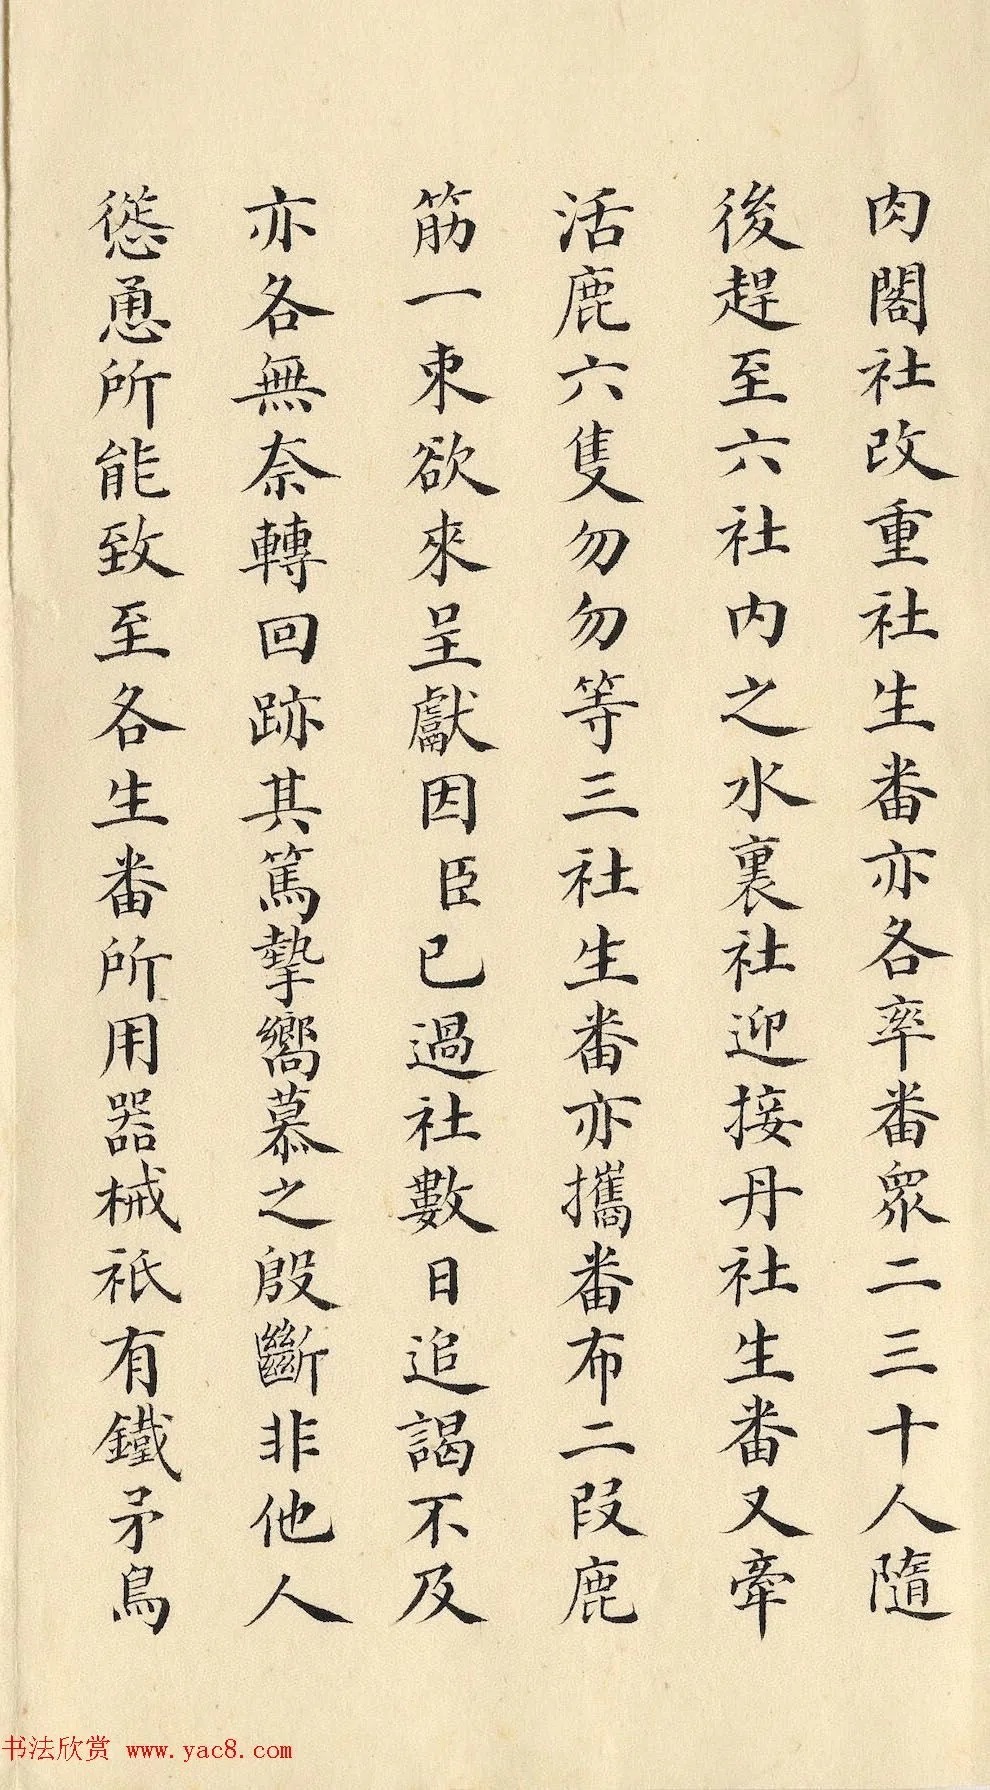 肉閣社改重社生番亦各率番眾二三十人隨
後趕至六社内之水裏社迎接丹社生番又牽
活鹿六隻勿勿等三社生番亦攜番布二段鹿
筋一束欲來呈獻因臣已過社數日追謁不及
亦各無奈轉回跡其篤摯嚮慕之殷斷非他人
慫恿所能致至各生番所用器械祇有鐵矛鳥
书法欣赏 www.yac8.com